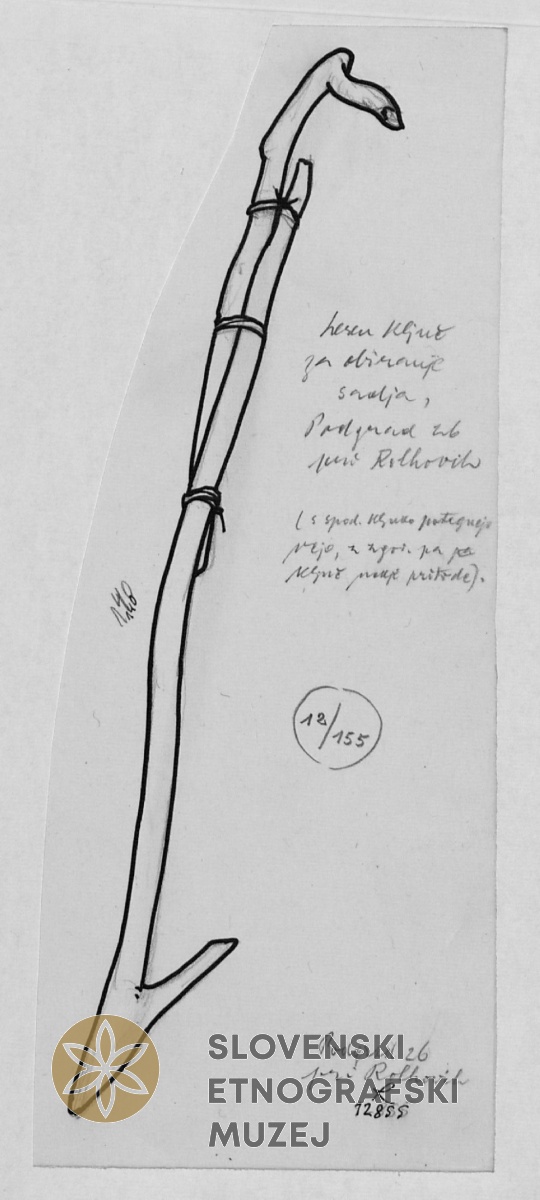 Lesen ključ
za obiranje
sadja,
Podgrad 26
pri Rolhovih
(s spod. kljuko potegnejo
vejo, z zgor. pa
ključ nekje pritrde).
12/155
26
pri Rolhovih
12855
SLOVENSKI
ETNOGRAFSKI
MUZEJ